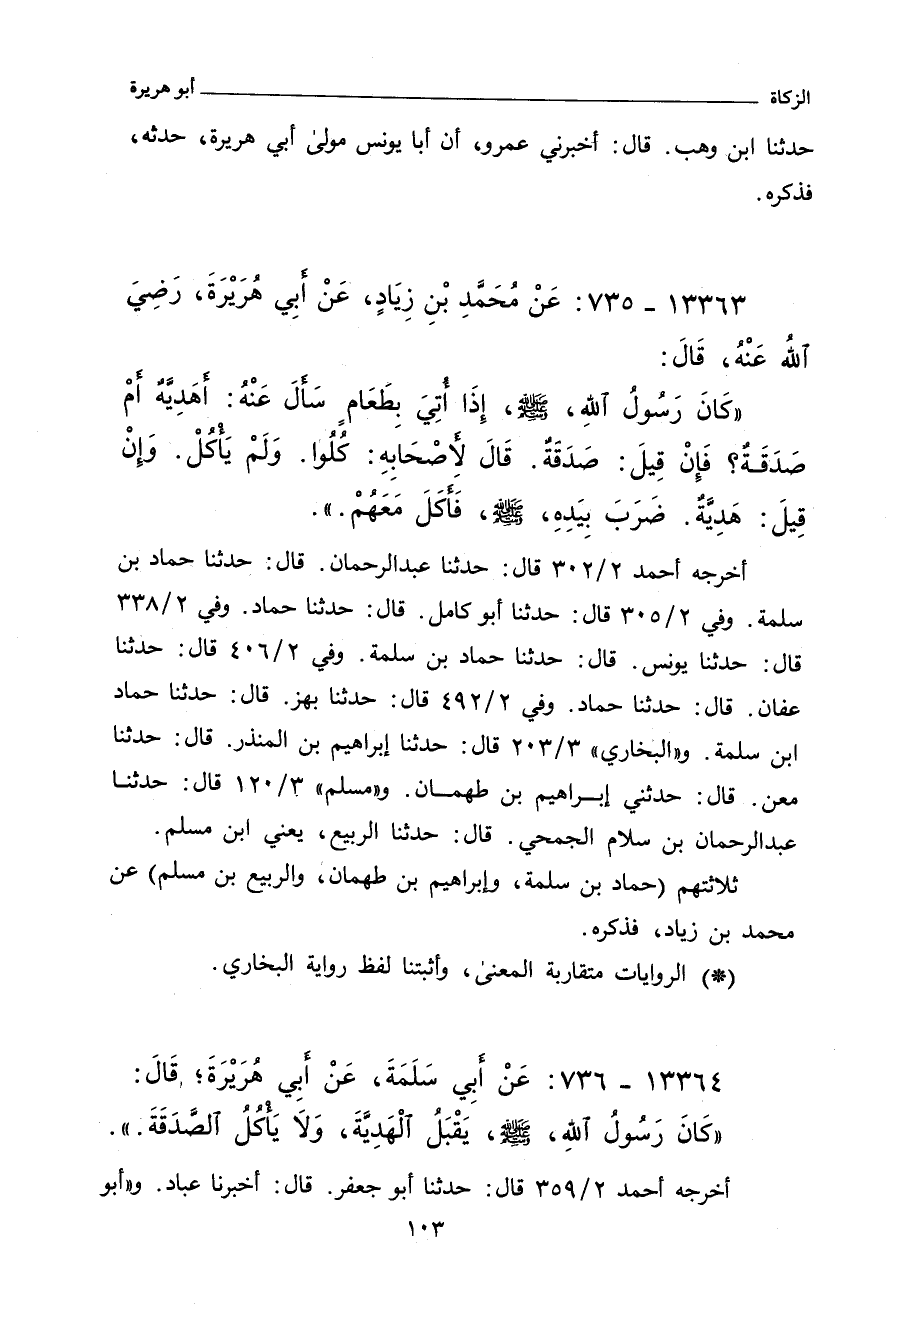 الزكاة ــــــــــــــــــــــــــــــــــــ أبو هريرة
حدثنا ابن وهب. قال: أخبرني عمرو، أن أبا يونس مولىٰ أبي هريرة، حدثه،
فذكره.
١٣٣٦٣ ـ ٧٣٥: عَنْ مُحَمَّدِ بْنِ زِيَادٍ، عَنْ أَبِي هُرَيْرَةَ، رَضِيَ
ٱللهُ عَنْهُ، قَالَ:
«كَانَ رَسُولُ ٱللهِ، ﷺ، إِذَا أُتِيَ بِطَعَامٍ سَأَلَ عَنْهُ: أَهَدِيَّةٌ أَمْ
صَدَقَةٌ؟ فَإِنْ قِيلَ: صَدَقَةٌ. قَالَ لِأَصْحَابِهِ: كُلُوا. وَلَمْ يَأْكُلْ. وَإِنْ
قِيلَ: هَدِيَّةٌ. ضَرَبَ بِيَدِهِ، ﷺ، فَأَكَلَ مَعَهُمْ.».
أخرجه أحمد ٣٠٢/٢ قال: حدثنا عبدالرحمان. قال: حدثنا حماد بن
سلمة. وفي ٣٠٥/٢ قال: حدثنا أبو كامل. قال: حدثنا حماد. وفي ٣٣٨/٢
قال: حدثنا يونس. قال: حدثنا حماد بن سلمة. وفي ٤٠٦/٢ قال: حدثنا
عفان. قال: حدثنا حماد. وفي ٤٩٢/٢ قال: حدثنا بهز. قال: حدثنا حماد
ابن سلمة. و«البخاري» ٢٠٣/٣ قال: حدثنا إبراهيم بن المنذر. قال: حدثنا
معن. قال: حدثني إبــراهيم بن طهمــان. و«مسلم» ١٢٠/٣ قال: حدثنــا
عبدالرحمان بن سلام الجمحي. قال: حدثنا الربيع، يعني ابن مسلم.
ثلاثتهم (حماد بن سلمة، وإبراهيم بن طهمان، والربيع بن مسلم) عن
محمد بن زياد، فذكره.
(*) الروايات متقاربة المعنىٰ، وأثبتنا لفظ رواية البخاري.
١٣٣٦٤ ـ ٧٣٦: عَنْ أَبِي سَلَمَةَ، عَنْ أَبِي هُرَيْرَةَ؛ قَالَ:
«كَانَ رَسُولُ ٱللهِ، ﷺ، يَقْبَلُ ٱلْهَدِيَّةَ، وَلَا يَأْكُلُ ٱلصَّدَقَةَ.».
أخرجه أحمد ٣٥٩/٢ قال: حدثنا أبو جعفر. قال: أخبرنا عباد. و«أبو
١٠٣